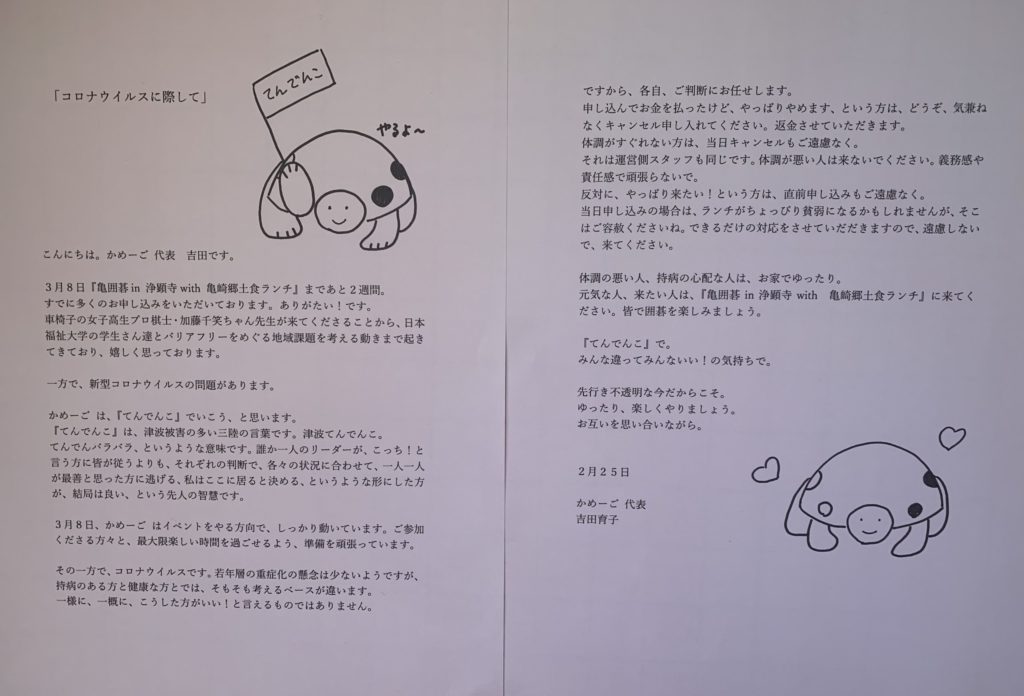 「コロナウイルスに際して」
てんでんこ
やるよ〜
こんにちは。かめーご 代表　吉田です。
３月８日『亀囲碁 in 浄顕寺 with 亀崎郷土食ランチ』まであと２週間。
すでに多くのお申し込みをいただいております。ありがたい！です。
車椅子の女子高生プロ棋士・加藤千笑ちゃん先生が来てくださることから、日本
福祉大学の学生さん達とバリアフリーをめぐる地域課題を考える動きまで起き
てきており、嬉しく思っております。
一方で、新型コロナウイルスの問題があります。
かめーご は、『てんでんこ』でいこう、と思います。
『てんでんこ』は、津波被害の多い三陸の言葉です。津波てんでんこ。
てんでんバラバラ、というような意味です。誰か一人のリーダーが、こっち！と
言う方に皆が従うよりも、それぞれの判断で、各々の状況に合わせて、一人一人
が最善と思った方に逃げる、私はここに居ると決める、というような形にした方
が、結局は良い、という先人の智慧です。
３月８日、かめーご はイベントをやる方向で、しっかり動いています。ご参加
くださる方々と、最大限楽しい時間を過ごせるよう、準備を頑張っています。
その一方で、コロナウイルスです。若年層の重症化の懸念は少ないようですが、
持病のある方と健康な方とでは、そもそも考えるベースが違います。
一様に、一概に、こうした方がいい！と言えるものではありません。
ですから、各自、ご判断にお任せします。
申し込んでお金を払ったけど、やっぱりやめます、という方は、どうぞ、気兼ね
なくキャンセル申し入れてください。返金させていただきます。
体調がすぐれない方は、当日キャンセルもご遠慮なく。
それは運営側スタッフも同じです。体調が悪い人は来ないでください。義務感や
責任感で頑張らないで。
反対に、やっぱり来たい！という方は、直前申し込みもご遠慮なく。
当日申し込みの場合は、ランチがちょっぴり貧弱になるかもしれませんが、そこ
はご容赦くださいね。できるだけの対応をさせていただだきますので、遠慮しない
で、来てください。
体調の悪い人、持病の心配な人は、お家でゆったり。
元気な人、来たい人は、『亀囲碁 in 浄顕寺 with　亀崎郷土食ランチ』に来てく
ださい。皆で囲碁を楽しみましょう。
『てんでんこ』で。
みんな違ってみんないい！の気持ちで。
先行き不透明な今だからこそ。
ゆったり、楽しくやりましょう。
お互いを思い合いながら。
２月２５日
かめーご 代表
吉田育子